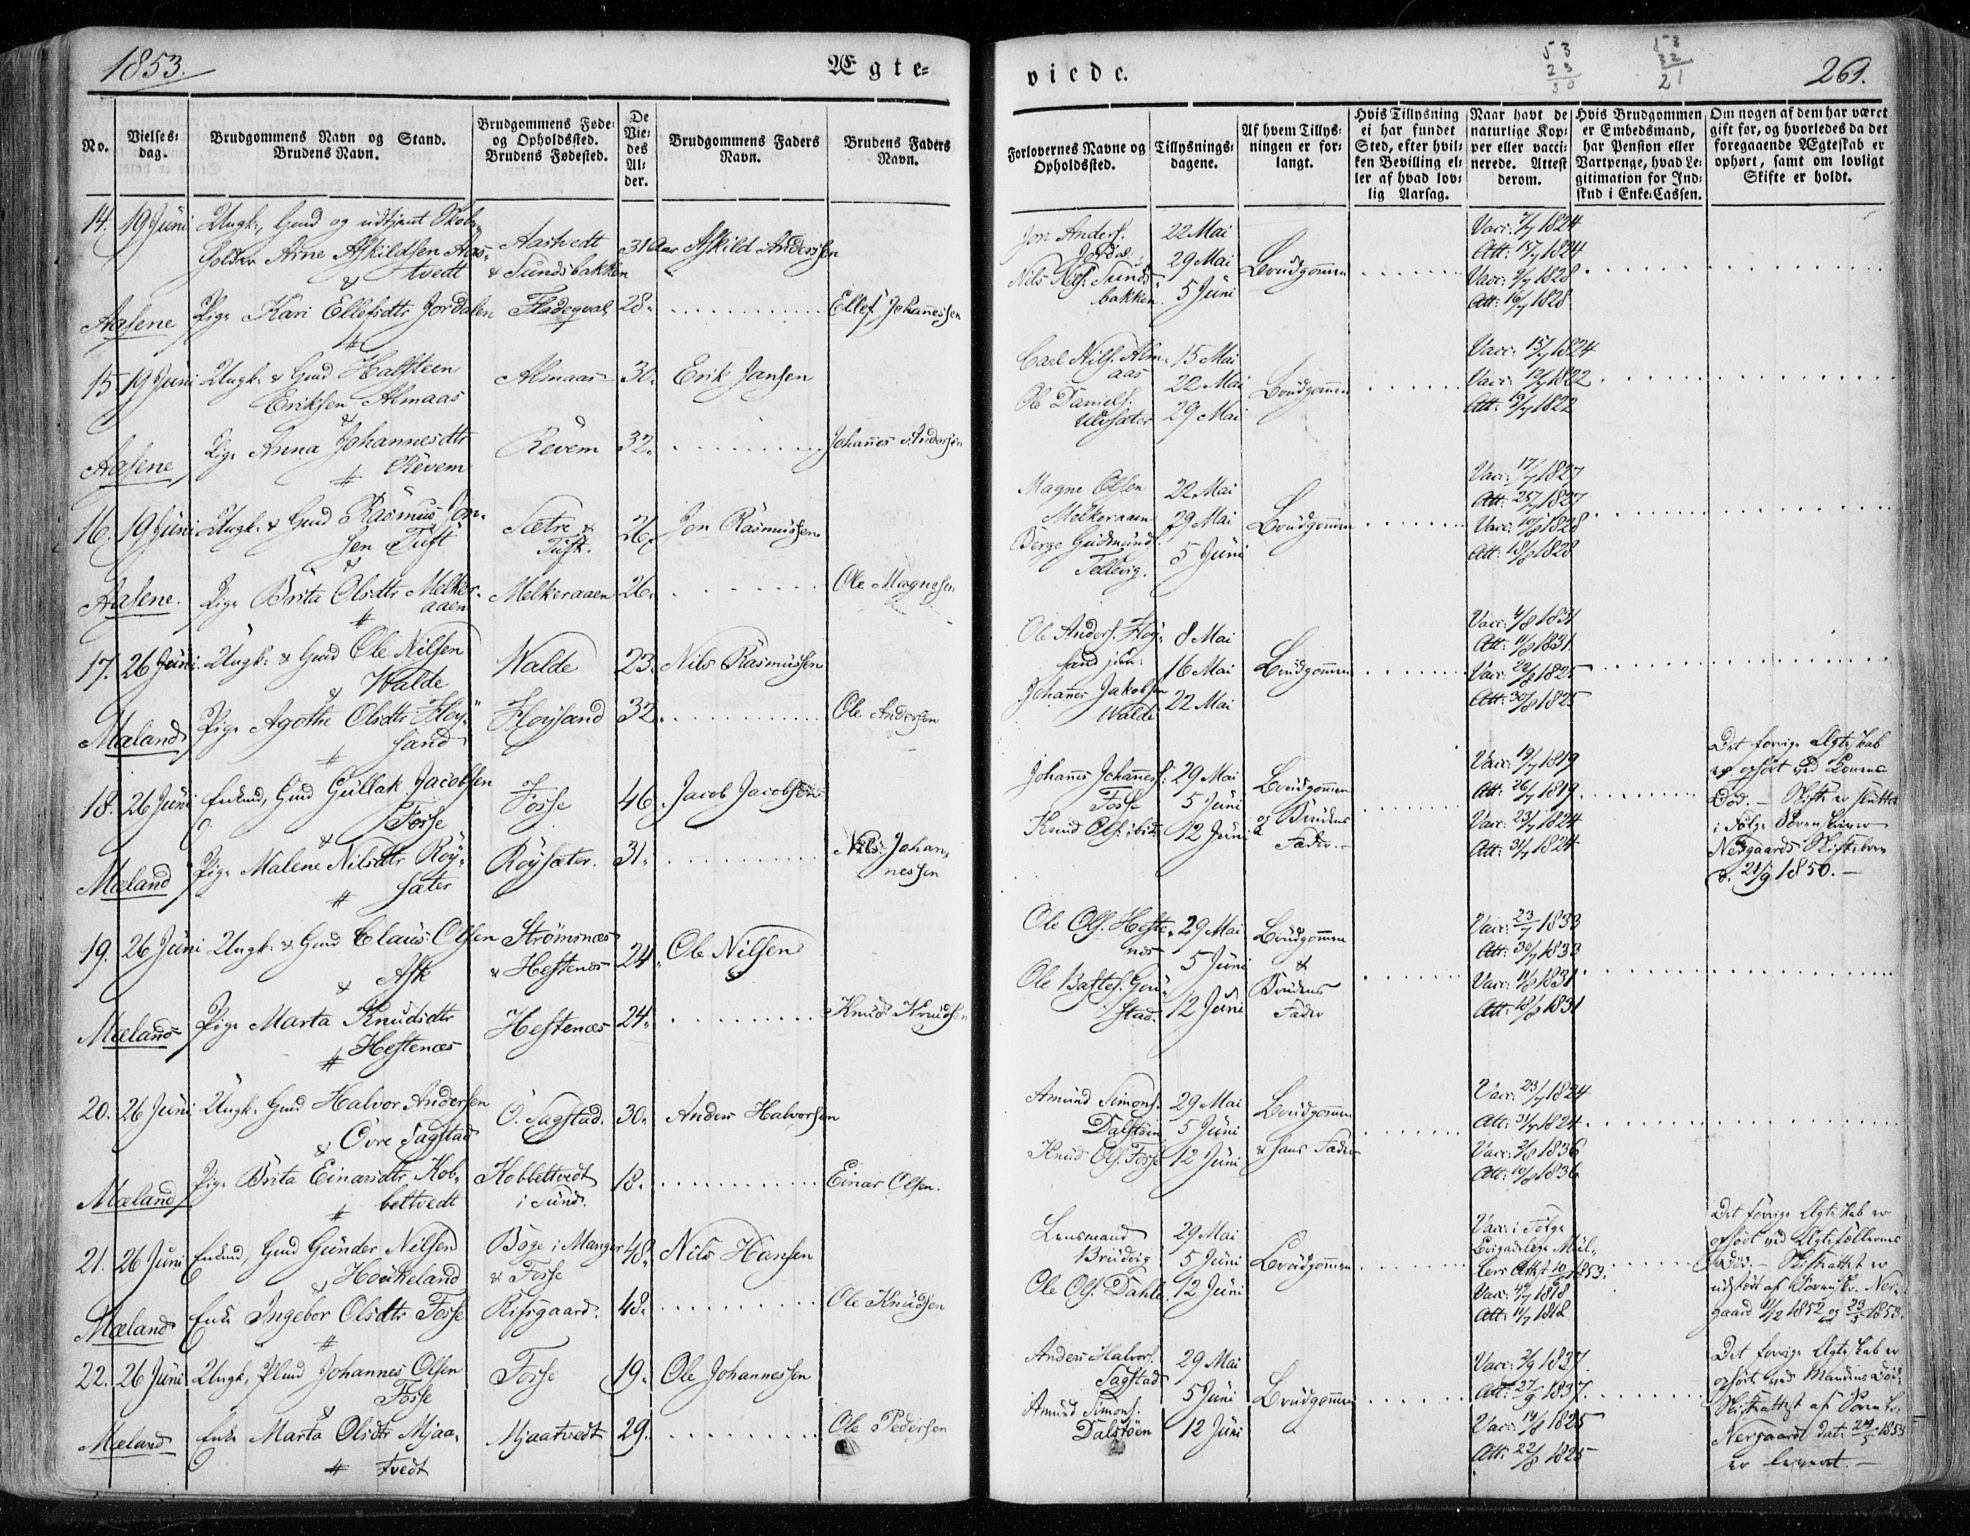 1853.
Ægte-
viede.
53
23
30
53
32
21
269.
No.
Vielses-
dag.
Brudgommens Navn og Stand.
Brudens Navn.
Brudgommens Føde-
og Opholdssted.
Brudens Fødested.
De
Vie-
des
Al-
der.
Brudgommens Faders
Navn.
Brudens Faders
Navn.
Forlovernes Navne og
Opholdssted.
Tillysnings-
dagene.
Af hvem Tillys-
ningen er for-
langt.
Hvis Tillysning
ei har fundet
Sted, efter hvil-
ken Bevilling el-
ler af hvad lov-
lig Aarsag.
Naar havt de
naturlige Kop-
per eller vacci-
nerede. Attest
derom.
Hvis Brudgommen
er Embedsmand,
har Pension eller
Vartpenge, hvad Le-
gitimation for Ind-
skud i Enke-Cassen.
Om nogen af dem har været
gift før, og hvorledes da det
foregaaende Ægteskab er
ophørt, samt om lovligt
Skifte er holdt.
14. 19 Juni Ungk., Gmd og udtjent
Arne Askildsen Aas-
tvedt
Aastvedt
& Sundsbakken
31 Aar
Askild Anderssen
Jon Anders.
Jordal
Nils Sunds-
bakken
22 Mai
29 Mai
5 Juni
Brudgommen
Vacc: 7/7 1824
Att: 15/7 1824
Vacc: 9/7 1828
Att: 16/7 1828
Aasene
Pige Kari Ellefsdtr Jordalen
28.
Ellef Johannessen
15 19 Juni Ungk. & Gmd Halfsteen
Eriksen Almaas
&
Almaas
30.
Erik Jansen
Carl Nils. Alm-
aas
Ole Daniels.
Ulvsæter
15 Mai
22 Mai
29 Mai
Brudgommen
Vacc: 15/7 1824
Vacc: 12/7 1822
Att: 19/7 1822
Aasene
Pige Anna Johannesdtr
Revem
Revem
32.
Johannes Andersen
16. 19 Juni Ungk. & Gmd Rasmus Jon-
sen Tuft
&
Sætre &
Tuft.
26.
Jon Rasmussen
Magne Olsen
Melkeraaen
Berge Gudmunds.
Tellevig.
22 Mai
29 Mai
5 Juni
Brudgommen
Vacc: 17/7 1827
Att: 25/7 1827
Vacc: 10/8 1828
Att: 18/8 1828
Aasene.
Pige Brita Olsdtr Melker-
aaen
Melkeraaen
26.
Ole Magnesen
17. 26 Juni Ungk. & Gmd Ole Nilsen
& Walde
Walde
23.
Nils Rasmussen
Ole Anders. Fløy-
sand jun:
Johannes Jakobsen
Walde
8 Mai
16 Mai
22 Mai
Brudgommen
Vacc: 4/8 1831
Att: 11/8 1831.
Vacc: 22/8 1825
Att: 30/8 1825
Mæland
Pige Agothe Olsdtr Fløy-
sand
Fløysand
32.
Ole Andersen
18. 26 Juni Enkmd, Gmd Gullak Jacobsen
& Fosse
Fosse
46.
Jacob Jacobsen
Johannes Johannes.
Fosse
Knud Ols. ibid
29 Mai
5 Juni
12 Juni
Brudgommen
og Brudens
Fader.-
Vacc: 19/7 1819
Att: 26/7 1819
Vacc: 23/7 1824
Att: 31/7 1824
Det forrige Ægteskab
er ophørt ved Konens
Død. - Skifte er sluttet
i Følge Sorenskriver
Nergaards Skiftebrev
d. 21/9 1850. -
Mæland
Pige Malene Nilsdtr Røy-
sæter
Røysæter.
31.
Nils Johan-
nessen
19. 26 Juni Ungk. & Gmd Claus Olsen
& Ask
Strømsnæs
& Hestenæs
24.
Ole Nilsen
Ole Ols. Heste-
næs
Ole Bastes. Gou-
stad.
29 Mai
5 Juni
12 Juni
Brudgommen
&
Brudens
Fader
Vacc: 23/7 1833
Att: 30/7 1833
Vacc: 11/8 1831
Att: 18/8 1831
Mæland
Pige Marta Knudsdtr
Hestenæs
Hestenæs
24.
Knud Knudsen
20. 26 Juni Ungk. Gmd Halvor Andersen
& Øvre Sagstad
Ö. Sagstad.
30.
Anders Halvorsen
Amund Simons.
Dalstøen
Knud Ols. Fosse
29 Mai
5 Juni
12 Juni
Brudgommen
& hans Fader
Vacc: 23/7 1824
Att: 31/7 1824
Vacc: 2/8 1836
Att: 10/8 1836
Mæland
Pige Brita Einarsdtr Kob-
beltvedt
Kobbeltvedt
i Sund.
18.
Einar Olsen.
21. 26 Juni Enkmd, Gmd Gunder Nilsen
& Houkeland
Bøge i Manger
& Fosse
48.
Nils Hansen
Lensmand
Brudvig
Ole Ols. Dahle
29 Mai
5 Juni
12 Juni
Brudgommen
Vacc: i Følge
Brigadelæge Møl-
lers Attest 10/6 1853.
Vacc: 4/7 1818
Att: 11/7 1818
Det forrige Ægteskab er
ophørt ved Ægtefællernes
Død. - Skifteattest er
udstedt af Sorenskr. Ner-
gaard 11/2 1852 og 23/5 1853.
Mæland
Enke Ingebor Olsdtr Fosse
Rifsgaard.
48.
Ole Knudsen
22. 26 Juni Ungk., Plmd Johannes Olsen
Fosse
&
Fosse
19.
Ole Johannessen
Anders Halvors.
Sagstad
Amund Simons.
Dalstøen
29 Mai
5 Juni
12 Juni
Brudgommen
Vacc: 2/9 1837.
Att: 27/9 1837.
Vacc: 14/8 1825
Att: 22/8 1825
Det forrige Ægteskab er
ophørt ved Mandens Død.
Skifteattest af Sorenskr.
Nergaard dat: 24/5 1853
er leveret. -
Mæland
Enke Marta Olsdtr Mjaa-
tvedt
Mjaatvedt
29.
Ole Pedersen